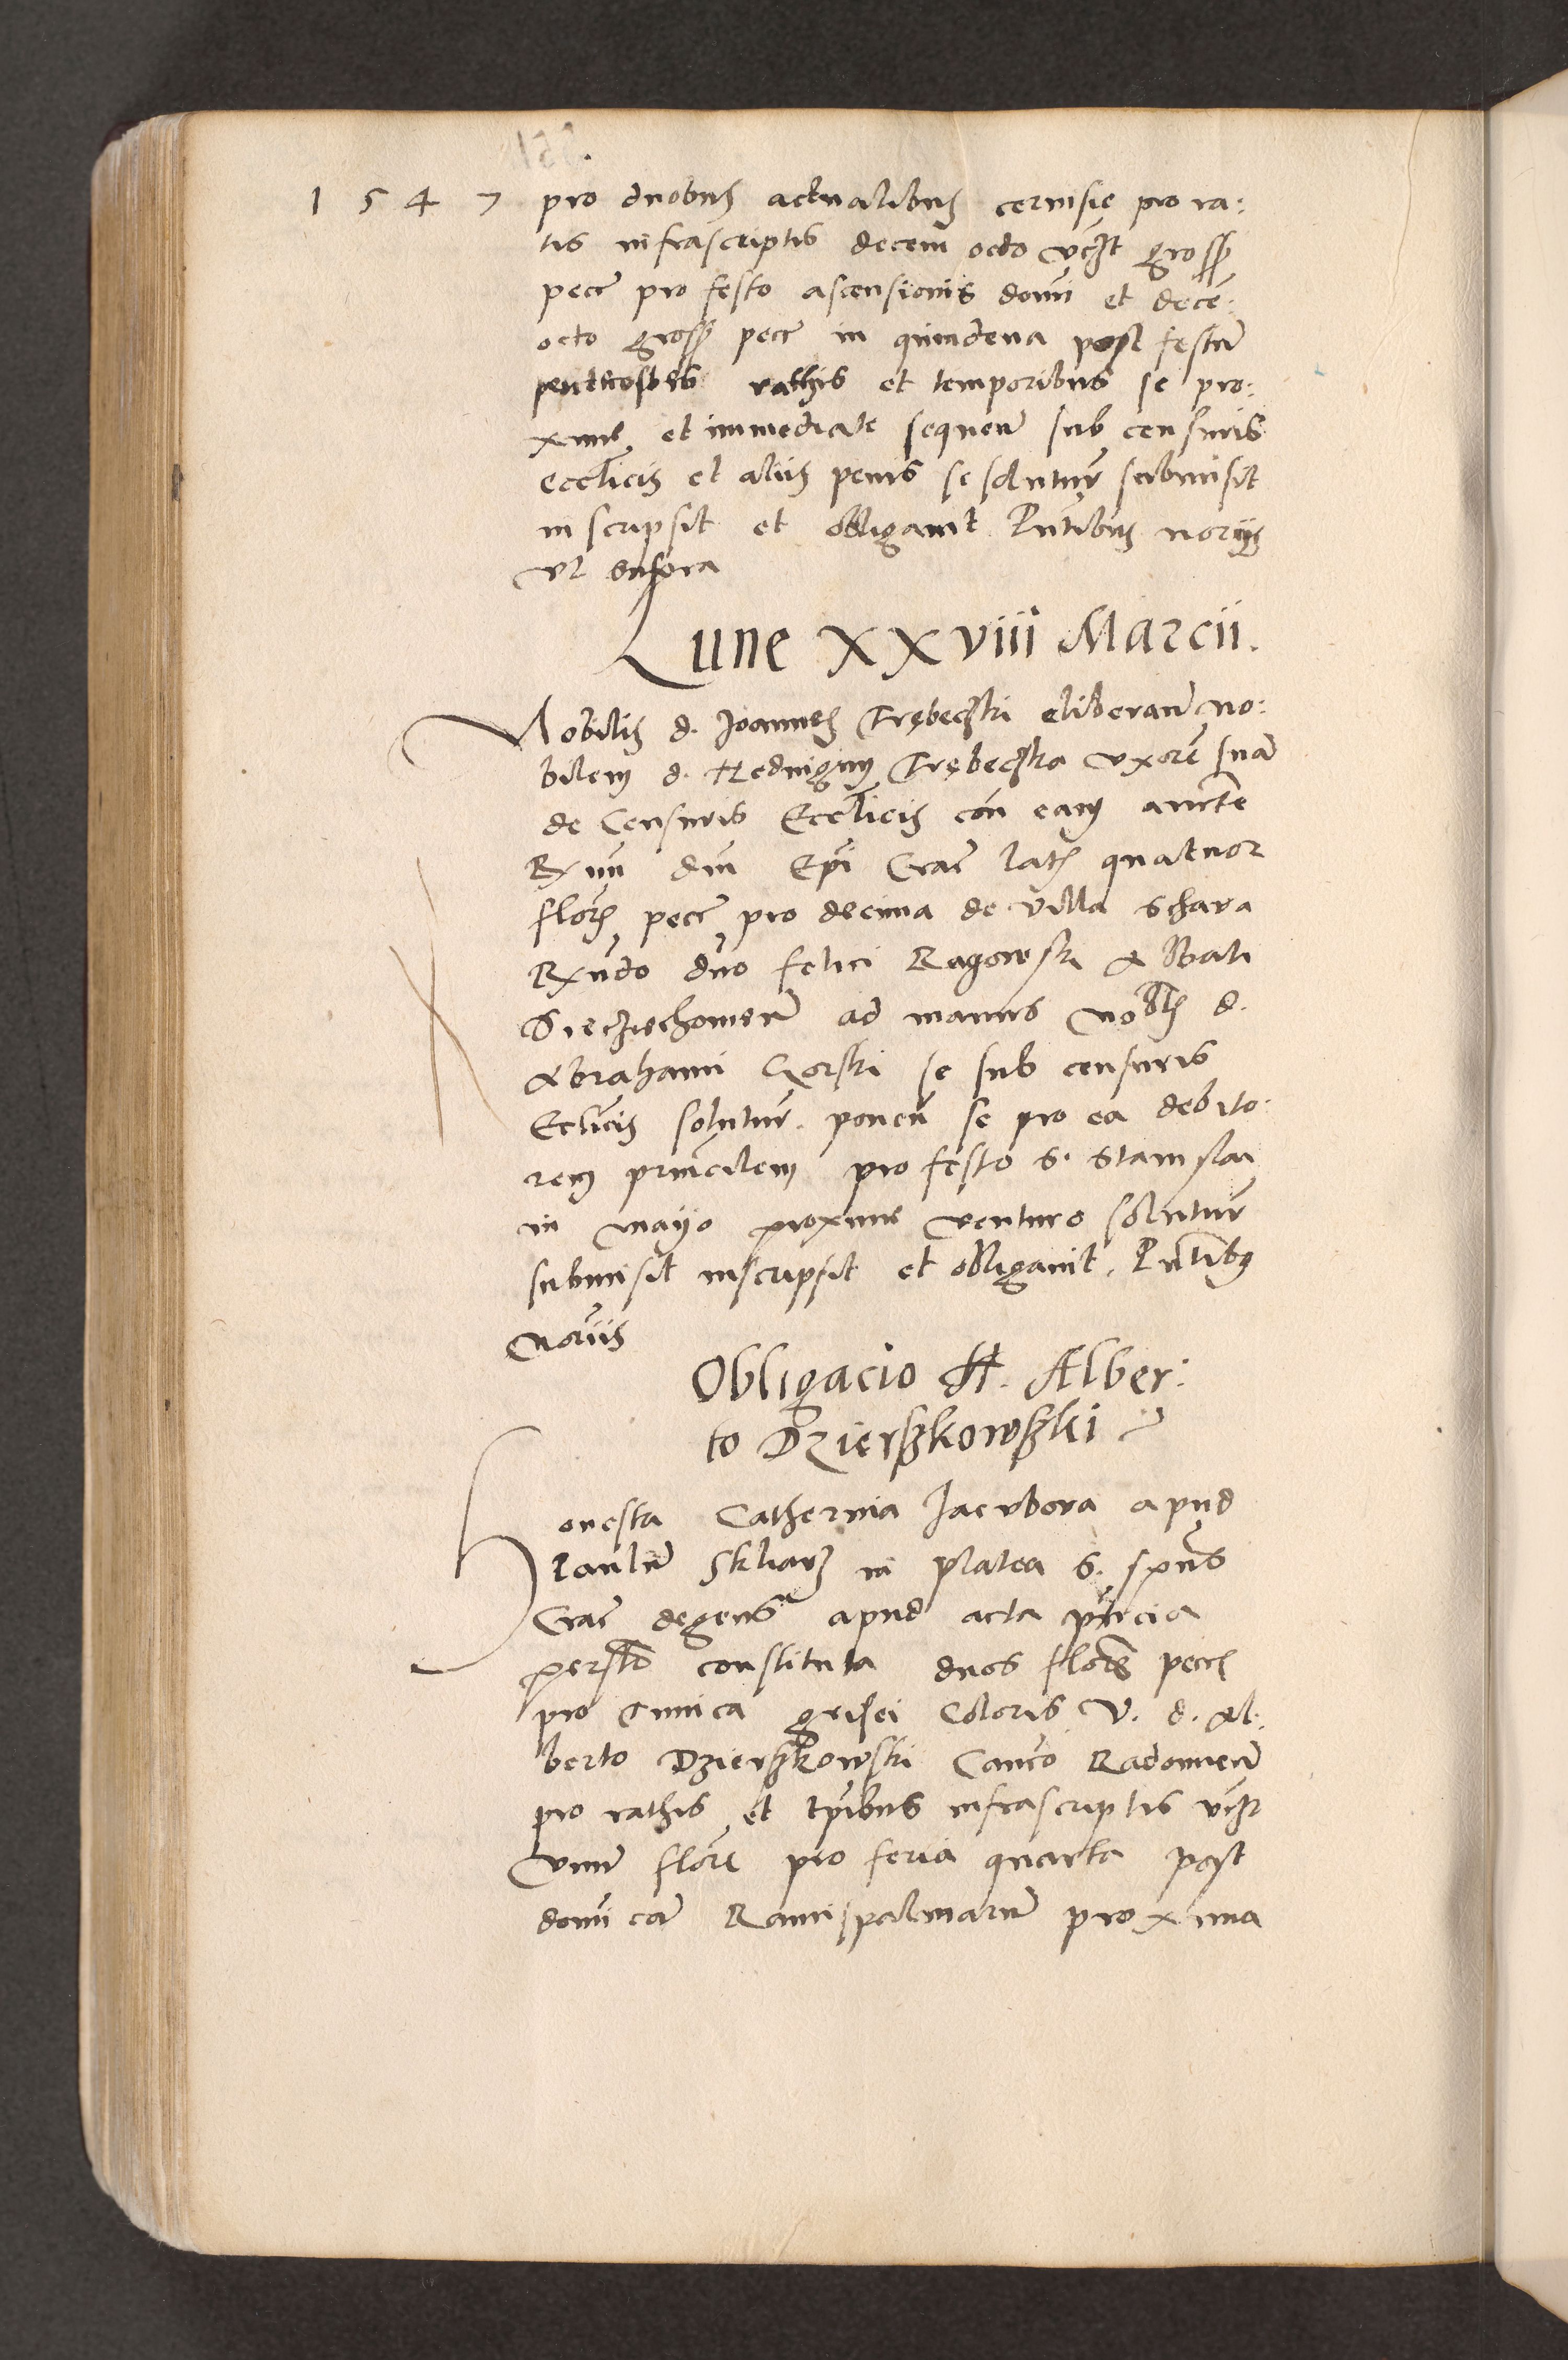 1 5 4 7 pro duobus actualibus cervisie pro ra:
tis infrascriptis decem octo vcȝt gross
pecc pro festo ascensionis domi et dece:
octo gross pecc in quindena post festu
penthecostes rathis et temporibus se pro:
xime et immediate sequen sub censuris
eccliciis et aliis penis se solutur submisit
inscripsit et obligavit Pntibus noriis
ut supra
Lune XXviii Marcii.
Nobilis d. Joannes Trębeczki eliberan no:
bilem d. Hedvigim Trębeczka uxore sua
de Censuris Ecclicis con eam aucte
Rx mi dni Epi Crac latis quatuor
flor pecc pro decima de villa Schara
Rxndo dno felici Ragowski Abbati
Sieczechowien ad manus nobilis d.
Abrahami Gorski se sub censuris
Eclicis solutur. ponen se pro ea debito:
rem princilem pro festo s. Stanislai
in mayo proxime venturo solutur
submisit inscripsit et obligavit. Pntibus
noriis
Obligacio H. Alber:
to Dzierszkowski
Honesta Catherina Jacubova apud
Paulu Skliarz in platea s. spus
Crac degens apud acta pncia
personalr constituta duos flore pecc
pro tunica grisei Coloris V. d. Al:
berto Dzierszkowski Canco Radomien
pro rathis et tpibus infrascriptis vcȝt
unu flore pro feria quarta post
domicam Ramispalmaru proxima